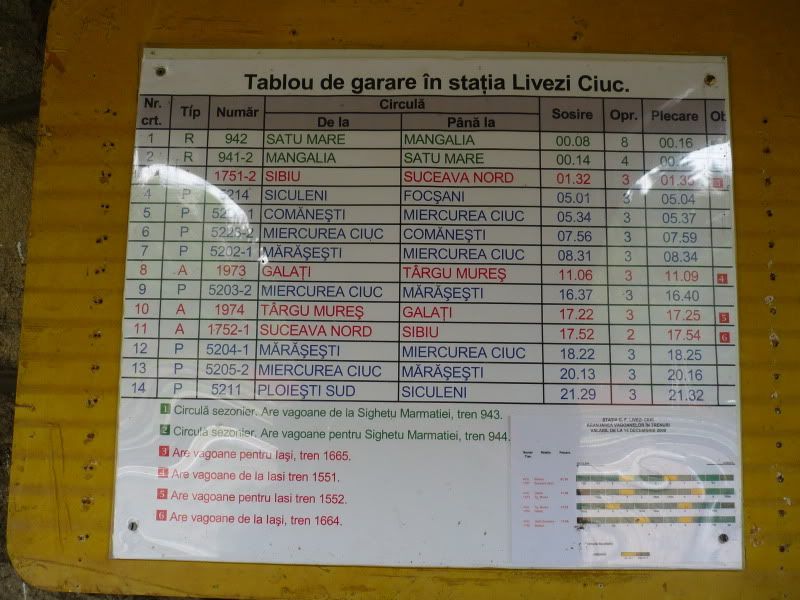 Tablou de garare în stația Livezi Ciuc.
Nr. crt. Típ Număr Circulă De la Până la Sosire Opr. Plecare Ob
1 R 942 SATU MARE MANGALIA 00.08 8 00.16
2 R 941-2 MANGALIA SATU MARE 00.14 4
1751-2 SIBIU SUCEAVA NORD 01.32 3 01.35 3
4 P SICULENI FOCŞANI 05.01 3 05.04
5 P COMĂNEŞTI MIERCUREA CIUC 05.34 3 05.37
6 P MIERCUREA CIUC COMĂNEŞTI 07.56 3 07.59
7 P 5202-1 MĂRĂŞEŞTI MIERCUREA CIUC 08.31 3 08.34
8 A 1973 GALAȚI TÂRGU MUREŞ 11.06 3 11.09 4
9 P 5203-2 MIERCUREA CIUC MĂRĂŞEŞTI 16.37 3 16.40
10 A 1974 TÂRGU MUREŞ GALAȚI 17.22 3 17.25 5
11 A 1752-1 SUCEAVA NORD SIBIU 17.52 2 17.54 6
12 P 5204-1 MĂRĂŞEŞTI MIERCUREA CIUC 18.22 3 18.25
13 P 5205-2 MIERCUREA CIUC MĂRĂŞEŞTI 20.13 3 20.16
14 P 5211 PLOIEŞTI SUD SICULENI 21.29 3 21.32
1 Circulă sezonier. Are vagoane de la Sighetu Marmatiei, tren 943.
2 Circulă sezonier. Are vagoane pentru Sighetu Marmatiei, tren 944.
3 Are vagoane pentru Iaşi, tren 1665.
4 Are vagoane de la Iasi tren 1551.
5 Are vagoane pentru Iasi tren 1552.
6 Are vagoane de la Iaşi, tren 1664.
STATIA C. F. LIVEZI- CIUC
VAGOANELOR ÎN TRENURI
VALABIL DE LA 14 DECEMBRIE